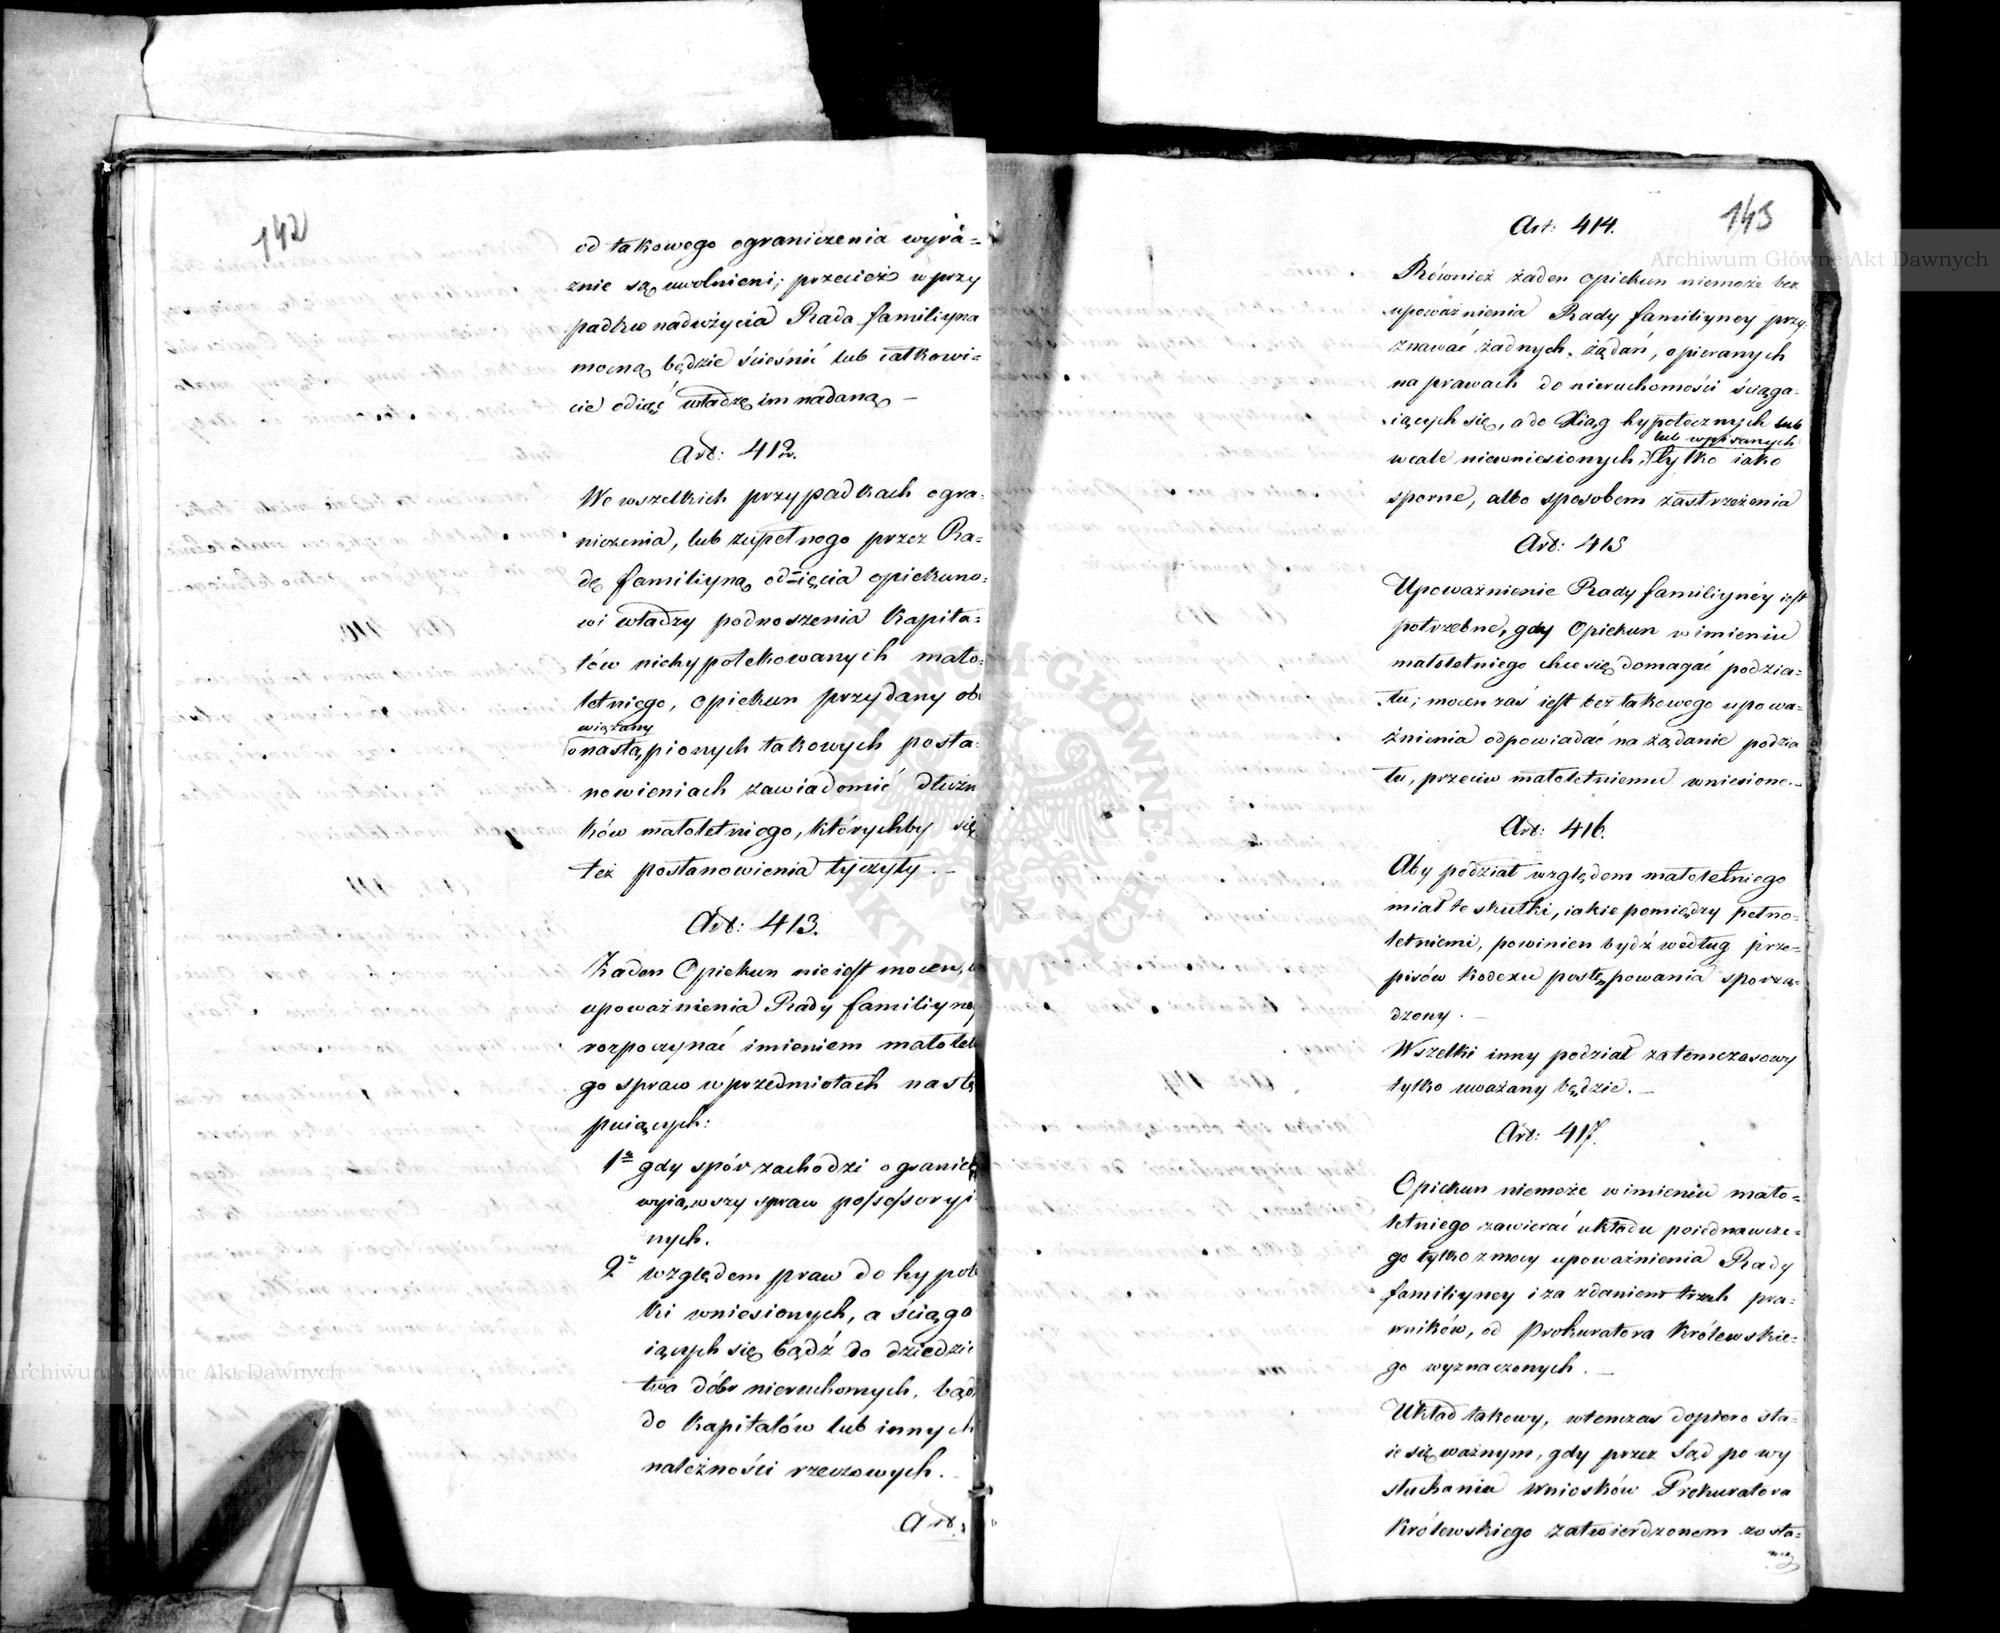 142
od takowego ograniczenia wyra=
znie są uwolnieni; przecież w przy
padku nadużycia Rada familiyna
mocną będzie ścieśnić lub całkowi=
cie odiąć władzę im nadaną —
Art: 412.
We wszelkich przypadkach ogra=
niczenia, lub zupełnego przez Ra=
dę familiyną odięcia opiekuno=
wi władzy podnoszenia kapita=
łów niehypotekowanych mało=
letniego, opiekun przydany ob
wiązany
o nastąpionych takowych posta=
nowieniach zawiadomić dłużn
ków małoletniego, którychby się
też postanowienia tyczyły. —
Art: 413.
Żaden Opiekun nie iest mocen, b
upoważnienia Rady familiyney
rozpoczynać imieniem małolet
go spraw w przedmiotach nastę
puiących:
1o gdy spór zachodzi o granice
wyiąwszy spraw possessoryi
nych.
2o względem praw do hypote
ki wniesionych, a ściąga
iących się bądź do dziedzic
twa dóbr nieruchomych, bądź
do kapitałów lub innych
należności rzeczowych. —
Art:
143
Art: 414.
Również żaden opiekun niemoże bez
upoważnienia Rady familiyney przy=
znawać żadnych żądań, opieranych
na prawach do nieruchomości ściąga=
iących się, a do Xiąg hypotecznych lub
lub wpisanych
wcale niewniesionych, tylko iako
sporne, albo sposobem zastrzeżenia
Art: 415
Upoważnienie Rady familiyney iest
potrzebne, gdy Opiekun w imieniu
małoletniego chce się domagać podzia=
łu; mocen zaś iest bez takowego upowa=
żnienia odpowiadać na żądanie podzia
łu, przeciw małoletniemu wniesione. —
Art: 416.
Aby podział względem małoletniego
miał te skutki, iakie pomiędzy pełno=
letniemi, powinien bydź według prze=
pisów kodexu postępowania sporzą=
dzony. —
Wszelki inny podział za tymczasowy
tylko uważany będzie. —
Art: 417.
Opiekun niemoże w imieniu mało=
letniego zawierać układu poiednawcze=
go tylko z mocy upoważnienia Rady
familiyney i za zdaniem trzech pra=
wników, od Prokuratora Królewskie=
go wyznaczonych. —
Układ takowy, wtenczas dopiero sta=
ie się ważnym, gdy przez Sąd po wy
słuchaniu wniosków Prokuratora
Królewskiego zatwierdzonem zosta=
nie
Archiwum Główne Akt Dawnych
Archiwum Główne Akt Dawnych
ARCHIWUM GŁÓWNE AKT DAWNYCH